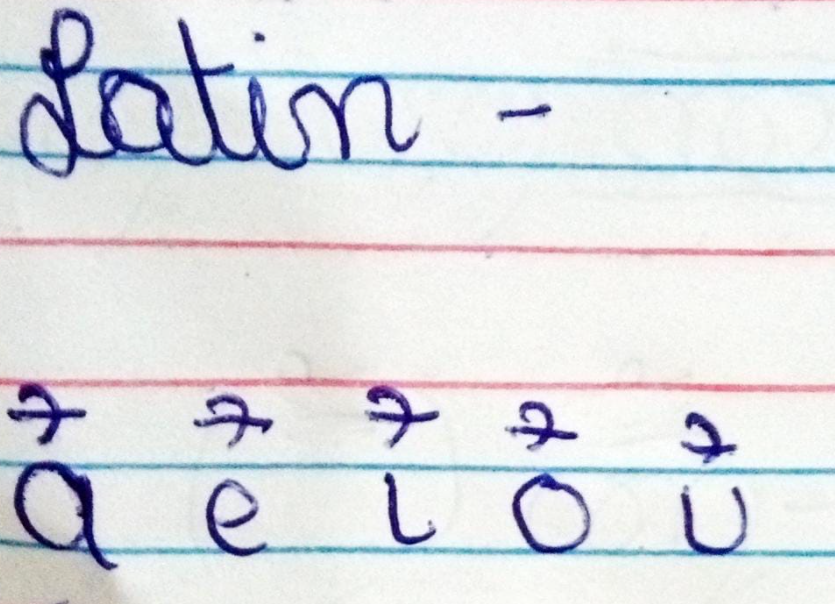 Latin -
a e i o u